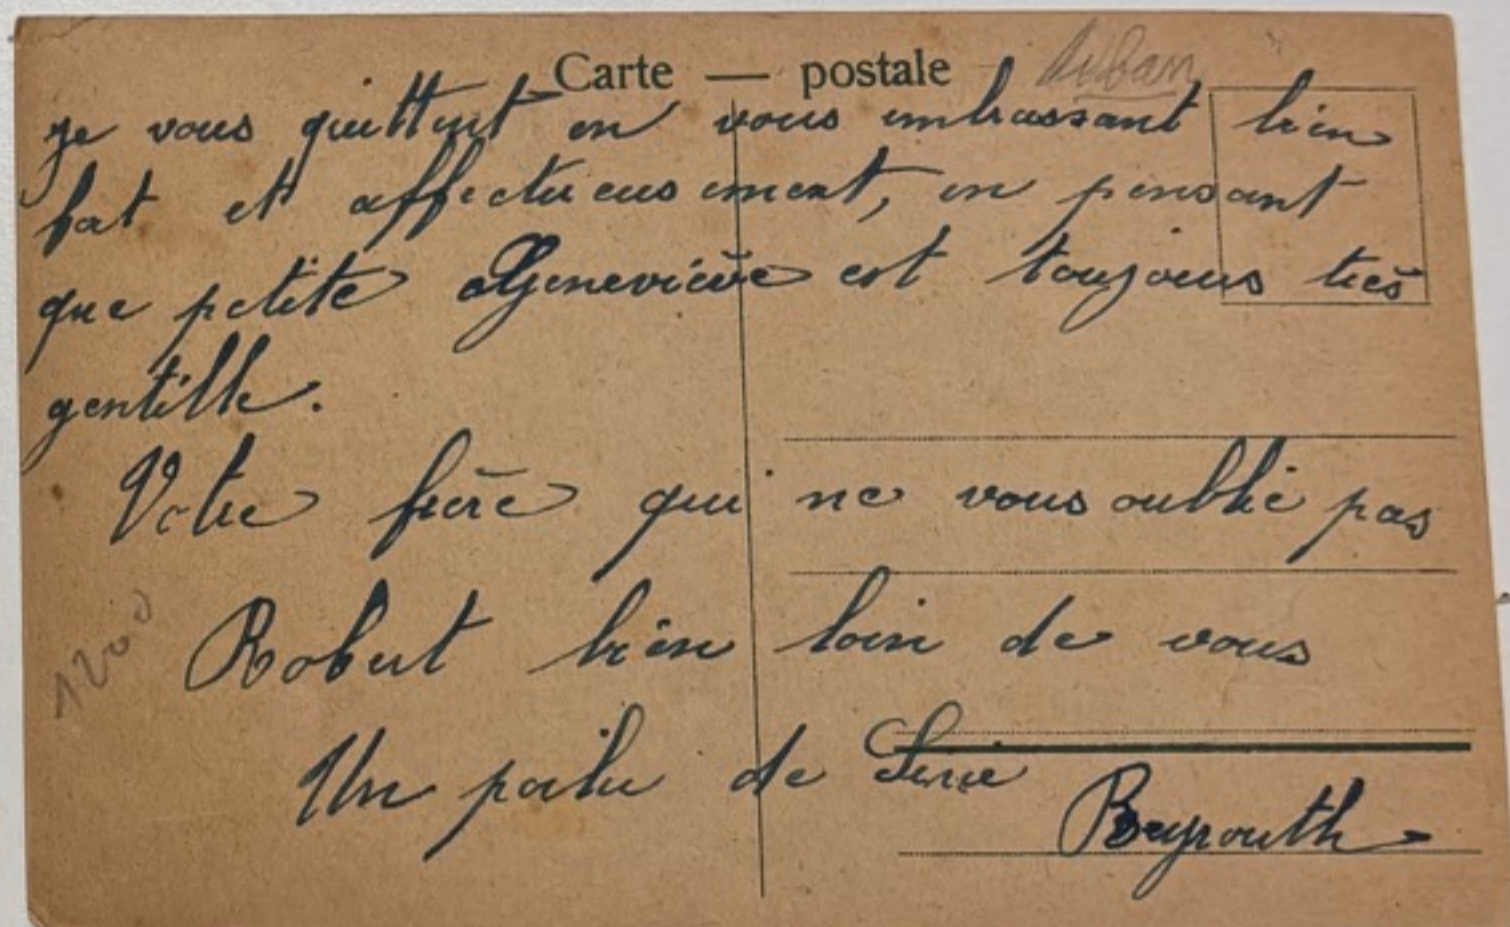 Carte — postale
Liban
je vous quittent en vous embrassant bien
fort et affectueusement, en pensant
que petite Geneviève est toujours très
gentille.
Votre frère qui ne vous oublie pas
Robert bien loin de vous
Un poilu de Sirie
Beyrouth
1200